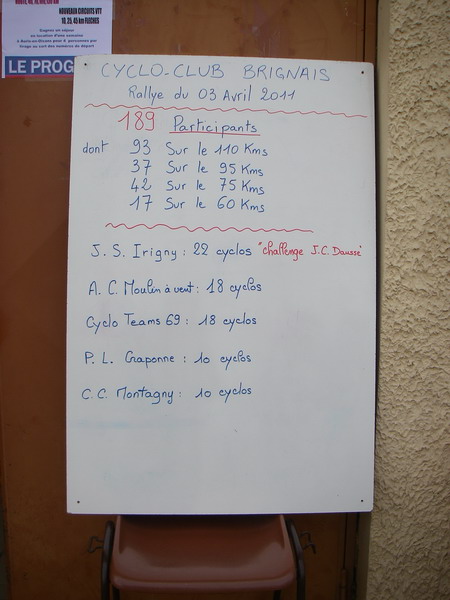 NOUVEAUX CIRCUITS VTT
10, 25, 45 km FLÉCHÉS
LE PROG
CYCLO-CLUB BRIGNAIS
Rallye du 03 Avril 2011
189 Participants
dont 93 Sur le 110 Kms
37 Sur le 95 Kms
42 Sur le 75 Kms
17 Sur le 60 Kms
J. S. Irigny : 22 cyclos "challenge J.C. Daussé"
A. C. Moulin à vent : 18 cyclos
Cyclo Teams 69 : 18 cyclos
P. L. Craponne : 10 cyclos
C. C. Montagny : 10 cyclos